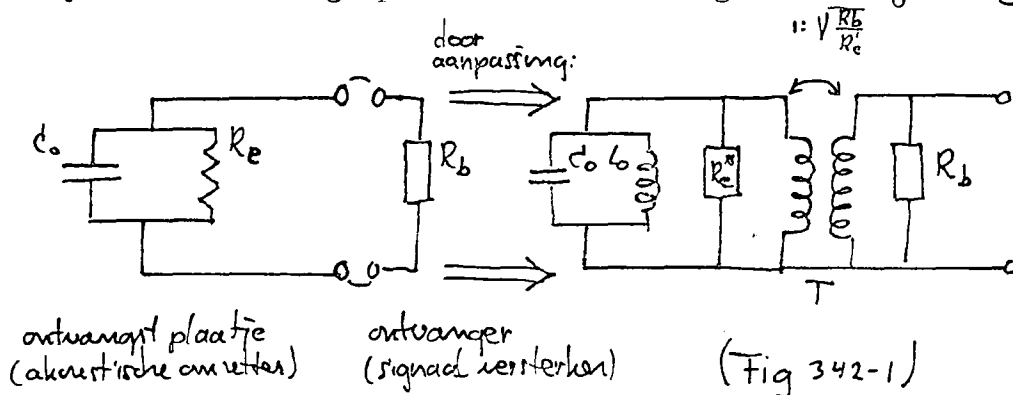 1: √Rb/R'e
door
aanpassing:
C₀ Rₑ R_b C₀ L₀ Rₑ* R_b
T
ontvangst plaatje
(akoestische omzetter)
ontvanger
(signaal versterker)
(Fig 342-1)